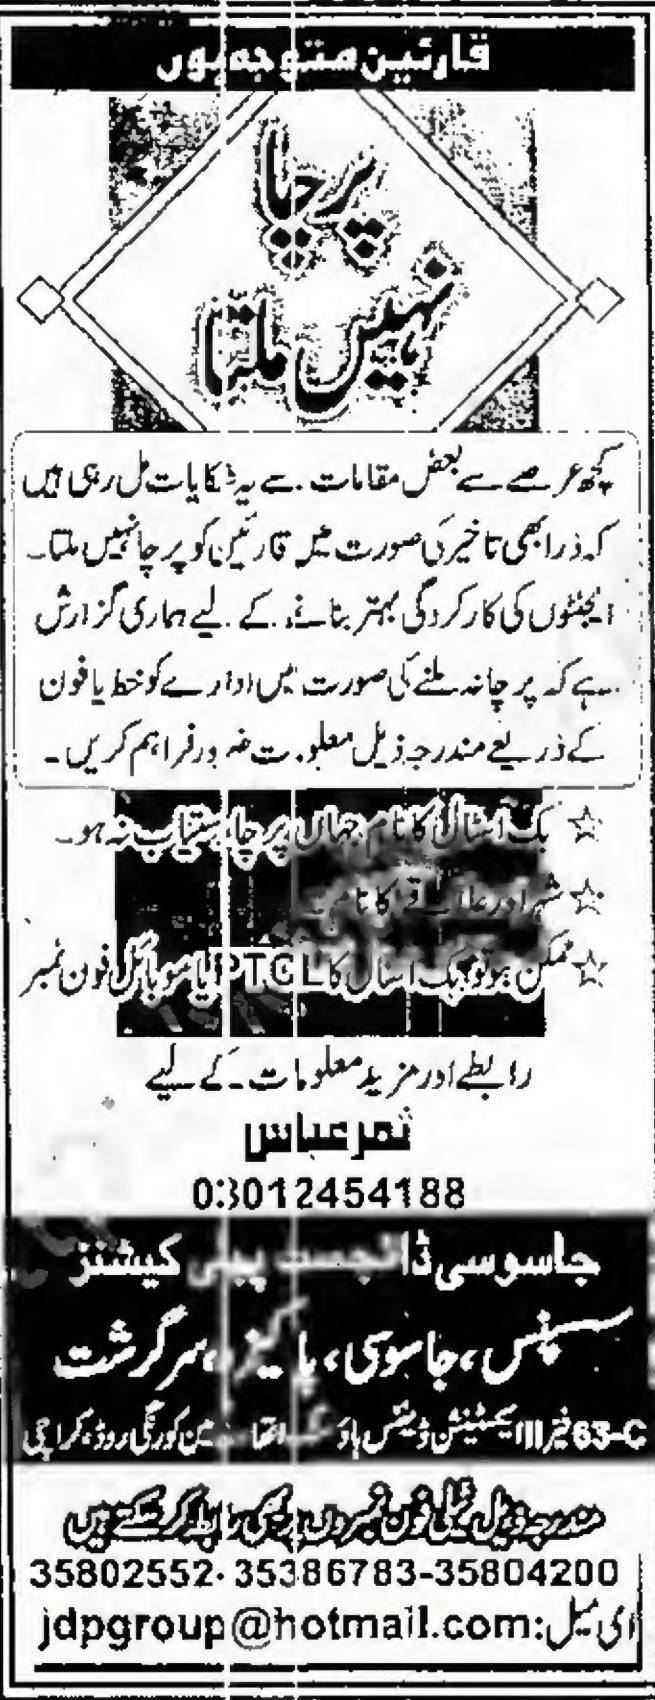 قارئین متوجہ ہوں
پرچا
نہیں ملتا
کچھ عرصے سے بعض مقامات سے یہ شکایات مل رہی ہیں
کہ ذرا بھی تاخیر کی صورت میں قارئین کو پرچا نہیں ملتا۔
ایجنٹوں کی کارکردگی بہتر بنانے کے لیے ہماری گزارش
ہے کہ پرچا نہ ملنے کی صورت میں ادارے کو خط یا فون
کے ذریعے مندرجہ ذیل معلومات ضرور فراہم کریں۔
☆ بک اسٹال کا نام جہاں پرچا دستیاب نہ ہو۔
☆ شہر اور علاقے کا نام۔
☆ ممکن ہو تو بک اسٹال کا PTCL یا موبائل فون نمبر
رابطے اور مزید معلومات کے لیے
ثمر عباس
03012454188
جاسوسی ڈائجسٹ پبلی کیشنز
سسپنس، جاسوسی، پاکیزہ، سرگزشت
63-C فیز III ایکسٹینشن ڈیفنس ہاؤسنگ اتھارٹی مین کورنگی روڈ، کراچی
مندرجہ ذیل ٹیلی فون نمبروں پر بھی رابطہ کر سکتے ہیں
35802552-35386783-35804200
ای میل: jdpgroup@hotmail.com